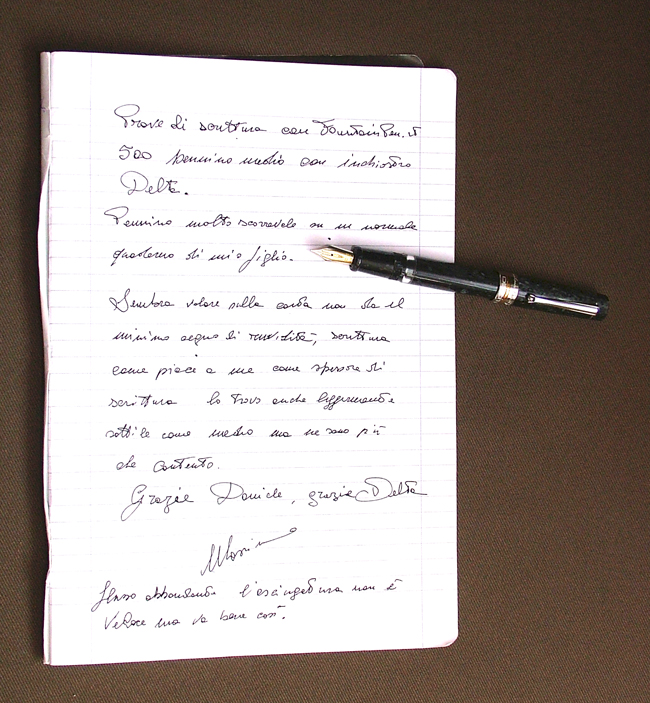 Prove di scrittura con FountainPen.it
500 pennino medio con inchiostro
Delta.
Pennino molto scorrevole su un normale
quaderno di mio figlio.
Sembra volare sulla carta non da il
minimo segno di ruvidità, scrittura
come piace a me come spessore di
scrittura lo trovo anche leggermente
sottile come medio ma ne sono più
che contento.
Grazie Daniele, grazie Delta
Massimo
Flusso abbondante l'asciugatura non è
veloce ma va bene così.